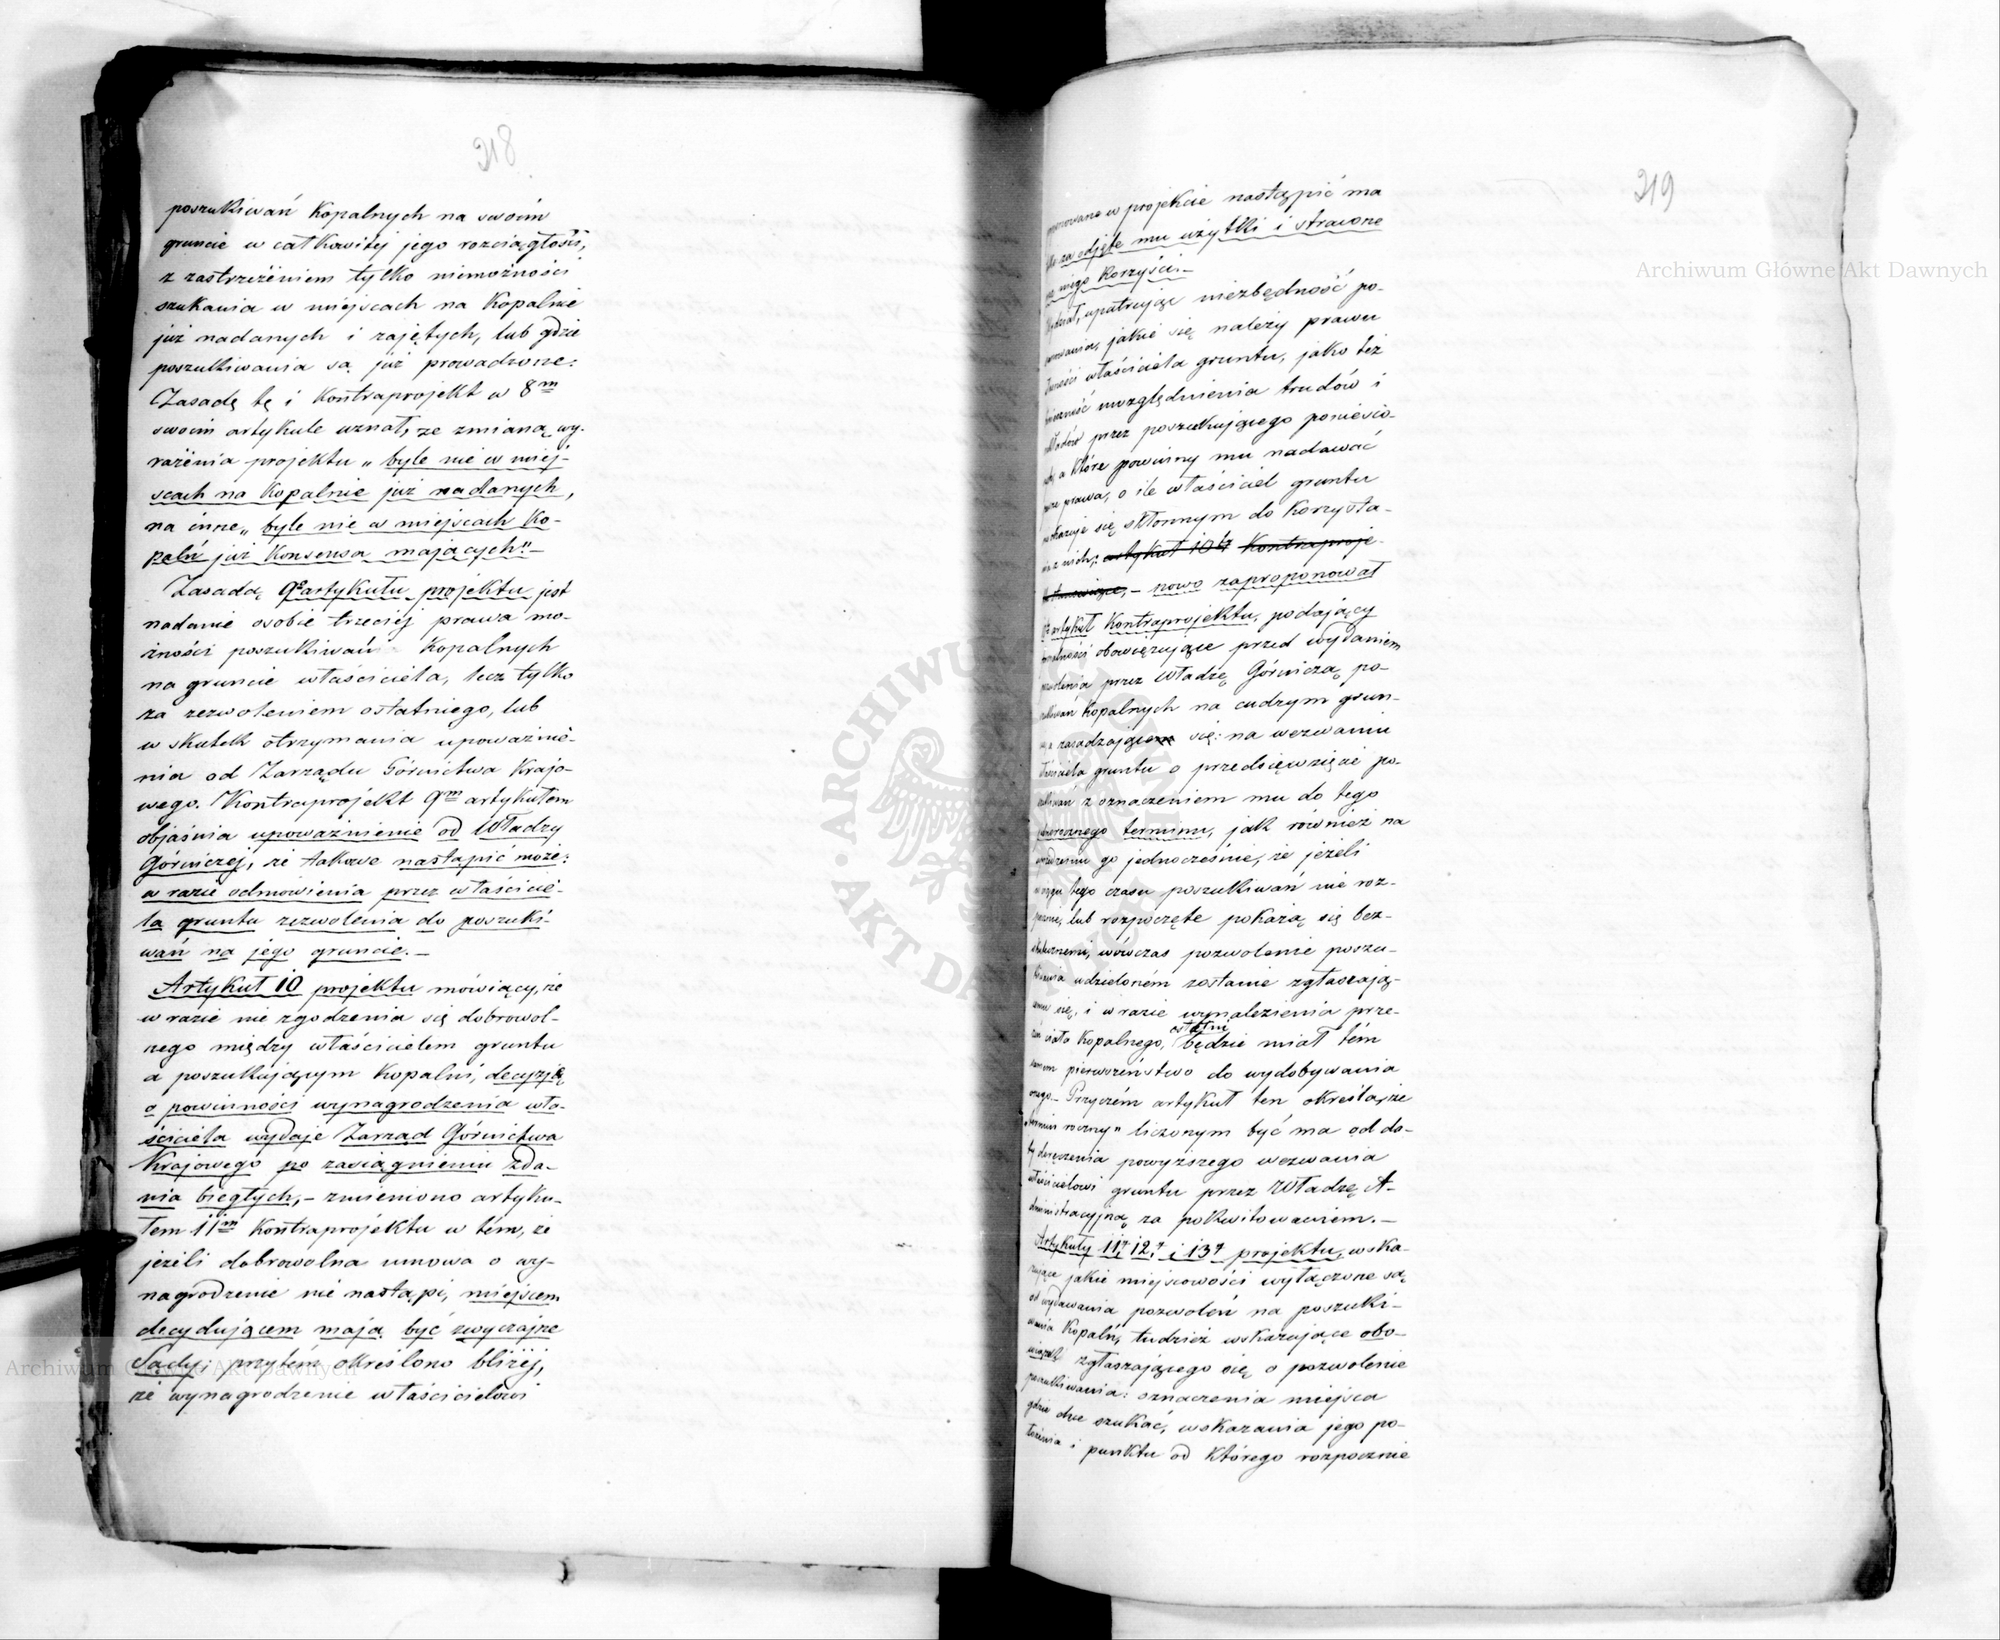 218
poszukiwań Kopalnych na swoim
gruncie w całkowitéj jego rozciągłości,
z zastrzeżeniem tylko niemożności
szukania w miejscach na Kopalnie
już nadanych i zajętych, lub gdzie
poszukiwania są już prowadzone:
Zasadę tę i Kontraprojekt w 8m
swoim artykule uznał, ze zmianą wy-
rażenia projektu „byle nie w miej-
scach na Kopalnie już nadanych,
na inne „byle nie w miejscach Ko-
palń już Konsensa mających". —
Zasadą 9º artykułu projektu jest
nadanie osobie trzeciéj prawa mo-
żności poszukiwań Kopalnych
na gruncie właściciela, lecz tylko
za zezwoleniem ostatniego, lub
w skutek otrzymania upoważnie-
nia od Zarządu Górnictwa Krajo-
wego. Kontraprojekt 9m artykułem
objaśnia upoważnienie od Władzy
Górniczej, że takowe nastąpić może:
w razie odmówienia przez właścicie-
la gruntu zezwolenia do poszuki-
wań na jego gruncie. —
Artykuł 10 projektu mówiący, że
w razie nie zgodzenia się dobrowol-
nego między właścicielem gruntu
a poszukującym Kopalni, decyzję
o powinności wynagrodzenia wła-
ściciela wydaje Zarząd Górnictwa
Krajowego po zasiągnieniu zda-
nia biegłych, — zmieniono artyku-
łem 11m Kontraprojektu w tém, że
jeżeli dobrowolna umowa o wy-
nagrodzenie nie nastąpi, miejscem
decydującem mają być zwyczajne
Sądy; przytém określono bliżéj,
że wynagrodzenie właścicielowi
219
w projekcie nastąpić ma
za odjęte mu użytki i stracone
niego Korzyści. —
upatrując niezbędność po-
jakie się należy prawu
właściciela gruntu, jako też
uwzględnienia trudów i
przez poszukującego ponieśio-
a które powinny mu nadawać
prawa, o ile właściciel gruntu
się skłonnym do Korzysta-
z nich; artykuł 10ty Kontraproje-
— nowo zaproponował
artykuł Kontraprojektu, podający
obowiązujące przed wydaniem
przez Władzę Górniczą po-
Kopalnych na cudzym grun-
zasadzające się: na wezwaniu
gruntu o przedsięwzięcie po-
z oznaczeniem mu do tego
rocznego terminu, jak również na
go jednocześnie, że jeżeli
w ciągu tego czasu poszukiwań nie roz-
lub rozpoczęte pokażą się bez-
skutecznemi, wówczas pozwolenie poszu-
kiwania udzieloném zostanie zgłaszają-
cemu się, i w razie wynalezienia prze-
zeń ciała Kopalnego, ostatni będzie miał tém
samem pierwszeństwo do wydobywania
onego. — Przyczém artykuł ten określa, że
„termin roczny" liczonym być ma od da-
ty doręczenia powyższego wezwania
właścicielowi gruntu przez Władzę A-
dministracyjną za pokwitowaniem. —
Artykuły 11y, 12y i 13y projektu, wska-
zujące jakie miejscowości wyłączone są
od wydawania pozwoleń na poszuki-
wania Kopalń, tudzież wskazujące obo-
wiązki zgłaszającego się o pozwolenie
poszukiwania: oznaczenia miejsca
gdzie chce szukać, wskazania jego po-
łożenia i punktu od którego rozpocznie
Archiwum Główne Akt Dawnych
Archiwum Główne Akt Dawnych